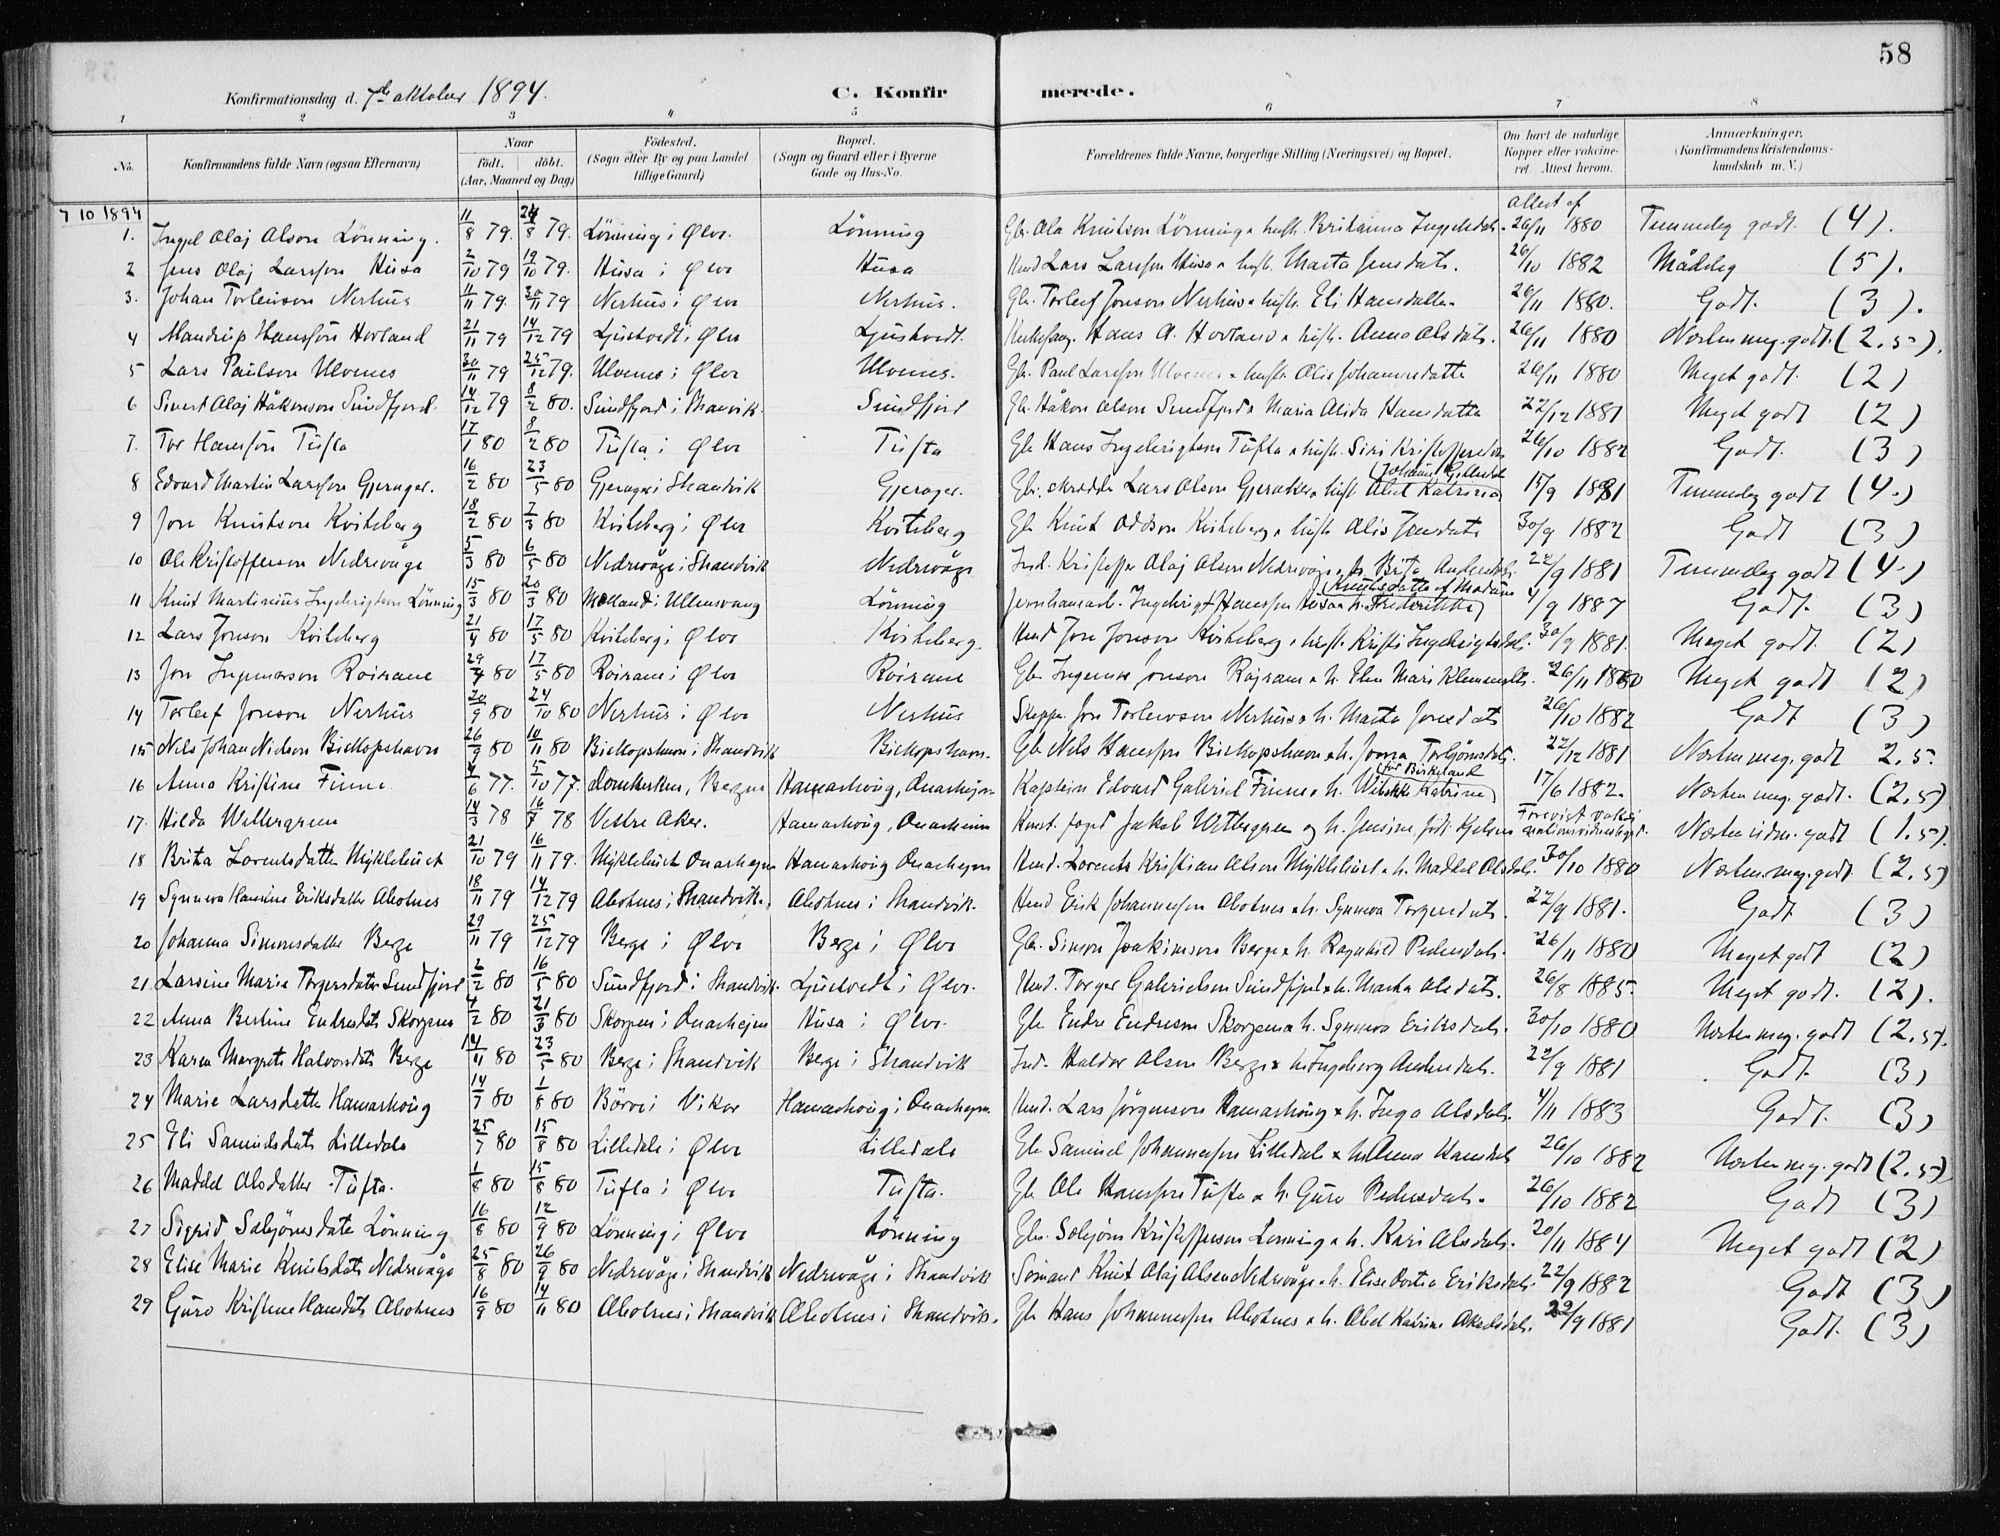 58
Konfirmationsdag d. 7de oktober 1894.
C. Konfirmerede.
1 2 3 4 5 6 7 8
No. Konfirmandens fulde Navn (ogsaa Efternavn) Naar født. døbt. (Aar, Maaned og Dag) Födested. (Sogn eller By og paa Landet tillige Gaard) Bopæl. (Sogn og Gaard eller i Byerne Gade og Hus-No. Forældrenes fulde Navne, borgerlige Stilling (Næringsvei) og Bopæl. Om havt de naturlige Kopper eller vaccineret Attest herom. Anmærkninger. (Konfirmandens Kristendomskundskab m. V.)
7 10 1894 attest af
1. Ingel Olaj Olson Lönning. 11/8 79. 24/8 79. Lönning i Ølve Lönning Gbr. Ola Knutson Lönning & hust. Britanna 26/11 1880 Temmelig godt. (4).
2 Jens Olaj Larsson Husa 2/10 79 19/10 79. Husa i Ølve Husa Husmd Lars Larsson Husa & hust. Marta Jensdatr. 26/10 1882 Mådelig (5).
3. Johan Torleivson Nerhus 11/11 79. 30/11 79 Nerhus i Ølve Nerhus. Gbr. Torleif Jonson Nerhus & hustr. Eli Hansdatter 26/11 1880. Godt. (3).
4 Mandrup Hansson Hovland 21/11 79 14/12 79 Ljustvedt i Ølve Ljustvedt. Hans A. Hovland & hustr. Anna Olsdatr. 26/11 1880 Næsten meg. godt. (2.5).
5 Lars Paulson Ulvenes 30/11 79 25/12 79. Ulvenes i Ølve Ulvenes. Gbr. Paul Larsson Ulvenes & hustr. Alis Johannesdatter 26/11 1880 Meget godt. (2)
6 Sivert Olaj Håkonson Sundfjord. 14/12 79 8/2 80. Sundfjord i Strandvik. Sundfjord Gbr. Håkon Olson Sundfjord & Maria Alida Hansdatter 22/12 1881 Meget godt (2)
7. Tor Hansson Tufta 17/1 80 8/2 80 Tufta i Ølve Tufta Gbr Hans Ingebrigtson Tufta & hustr. Siri Kristoffersdatr 26/10 1882 Godt. (3)
8 Edvard Martin Larsson Gjerager. 16/2 80 23/5 80 Gjerager i Strandvik Gjerager. Gbr. skrædder Lars Olson Gjeraker & hustr. Abel Katrine 15/9 1881 Temmelig godt (4.)
9 Jon Knutson Kviteberg 18/2 80 7/3 80 Kviteberg i Ølve Kviteberg Gbr Knut Oddson Kviteberg & hustr. Alis Jonsdatr 30/9 1882 Godt (3)
10 Ole Kristofferson Nedrevåge 5/3 80 6/5 80 Nedrevåge i Strandvik Nedrevåge Ind. Kristoffer Olaj Olson Nedrevåge & h. Brita Andersdatr. 22/9 1881 Temmelig godt (4.)
11 Knut Martinius Ingebrigtson Lönning 15/3 80 20/3 80 i Ullensvang Lönning Ingebrigt Hansson Husa & h. Frederikke 4/9 1887 Godt. (3)
12 Lars Jonson Kviteberg 21/4 80 17/5 80 Kviteberg i Ølve Kviteberg. Husmd Jon Jonson Kviteberg & hustr. Kristi Ingebrigtsdatr. 30/9 1881. Meget godt. (2)
13 Jon Ingmarson Roirane 29/4 80 17/5 80 Roirane i Ølve Roirane Gbr Ingemar Jonson Röjrane & h. Elen Mari 26/11 1880 Meget godt (2)
14 Torleif Jonson Nerhus 20/9 80 24/10 80 Nerhus i Ølve Nerhus Skipper Jon Torleivson Nerhus & h. Marta Jonsdatr 26/10 1882 Godt (3)
15 Nils Johan Nielsen Biskopshavn 26/9 80 14/11 80 Biskopshavn i Strandvik Biskopshavn. Gbr Nils Hansson Biskopshavn & h. Joron 22/12 1881 Næsten meg. godt 2.5.
16 Anna Kristine Finne 4/6 77. 5/10 77. Domkirken, Bergen Hamarhoug, Onarhejm Kaptein Edvard Gabriel Finne & h. Wibekke Katrine 17/6 1882. Næsten meg. godt. (2.5)
17. Hilda Wettergreen 14/3 78 16/7 78 Vestre Aker. Hamarhoug, Onarheim Const. foged Jakob Wettergreen og h. Jensine født Forevist vaksinationsattest. Næsten udm. godt (1.5).
18 Brita Lorentsdatter Myklebust 21/10 79 16/11 79. Myklebust Onarhejm Hamarhoug Onarhejm Husmd. Lorents Kristian Olson Myklebust & h. Maddel Olsdatr. 30/10 1880 Næsten meg. godt. (2.5)
19 Synneva Hansine Eriksdatter Aloknes 18/11 79 14/12 79 i Strandvik. i Strandvik. Husmd Erik Johannesson & h. Synneva Torgersdatr. 22/9 1881. Godt (3)
20 Johanna Simonsdatter Berge 29/11 79 25/12 79 Berge i Ølve Berge i Ølve Gbr. Simon Joakimson Berge & h. Ragnhild Pedersdatr. 26/11 1880 Meget godt (2)
21 Larsine Marie Torgersdatter Sundfjord 2/2 80 16/5 80 Sundfjord i Strandvik. Ljustvedt i Ølve. Husmd. Torger Gabrielson Sundfjord & h. Marta Olsdatr. 26/8 1885. Meget godt. (2).
22 Anna Bertine Endresdatr Skorpen 4/2 80 21/3 80 Skorpen i Onarhejm Husa i Ølve. Gbr Endre Endreson Skorpen & h. Synneva Eriksdatr. 30/10 1880 Næsten meg. godt (2.5).
23 Karen Margrete Halvorsdatr Berge 14/4 80 23/5 80 Berge i Strandvik Berge i Strandvik Ind. Haldor Olson Berge & h. Ingeborg Andersdatr. 22/9 1881 Godt. (3)
24 Marie Larsdatter Hamarhoug 14/7 80 1/8 80 Börve i Vikør Hamarhoug i Onarhejm. Husmd. Lars Jörgenson Hamarhoug & h. Inga Olsdatr. 4/11 1883 Godt. (3)
25 Eli Samuelsdatr Lilledale 25/7 80 15/8 80 Lilledale i Ølve Lilledale Gbr Samuel Johannesson Lilledale & h. Anna Hansdatr 26/10 1882 Næsten meg. godt (2.5)
26 Maddel Olsdatter Tufta. 1/8 80 15/8 80 Tufta i Ølve Tufta. Gbr Ole Hansson Tufta & h. Guro Pedersdatr. 26/10 1882 Godt (3)
27 Sigrid Salejönsdatr Lönning 16/8 80 12/9 80 Lönning i Ølve Lönning Gbr. Salejön Kristofferson Lönning & h. Kari Olsdatr. 20/11 1884 Meget godt (2)
28 Elise Marie Knutsdatr Nedrevåge 25/8 80 26/9 80 Nedrevåge i Strandvik Nedrevåge i Strandvik Sömand Knut Olaj Olsen Nedrevåge & h. Elise Dortea Eriksdatr. 22/9 1882 Godt (3)
29 Guro Kristine Hansdatr Aloknes 16/9 80 14/11 80 i Strandvik i Strandvik. Gbr Hans Johannesson & h. Abel Katrine 22/9 1881 Godt. (3)